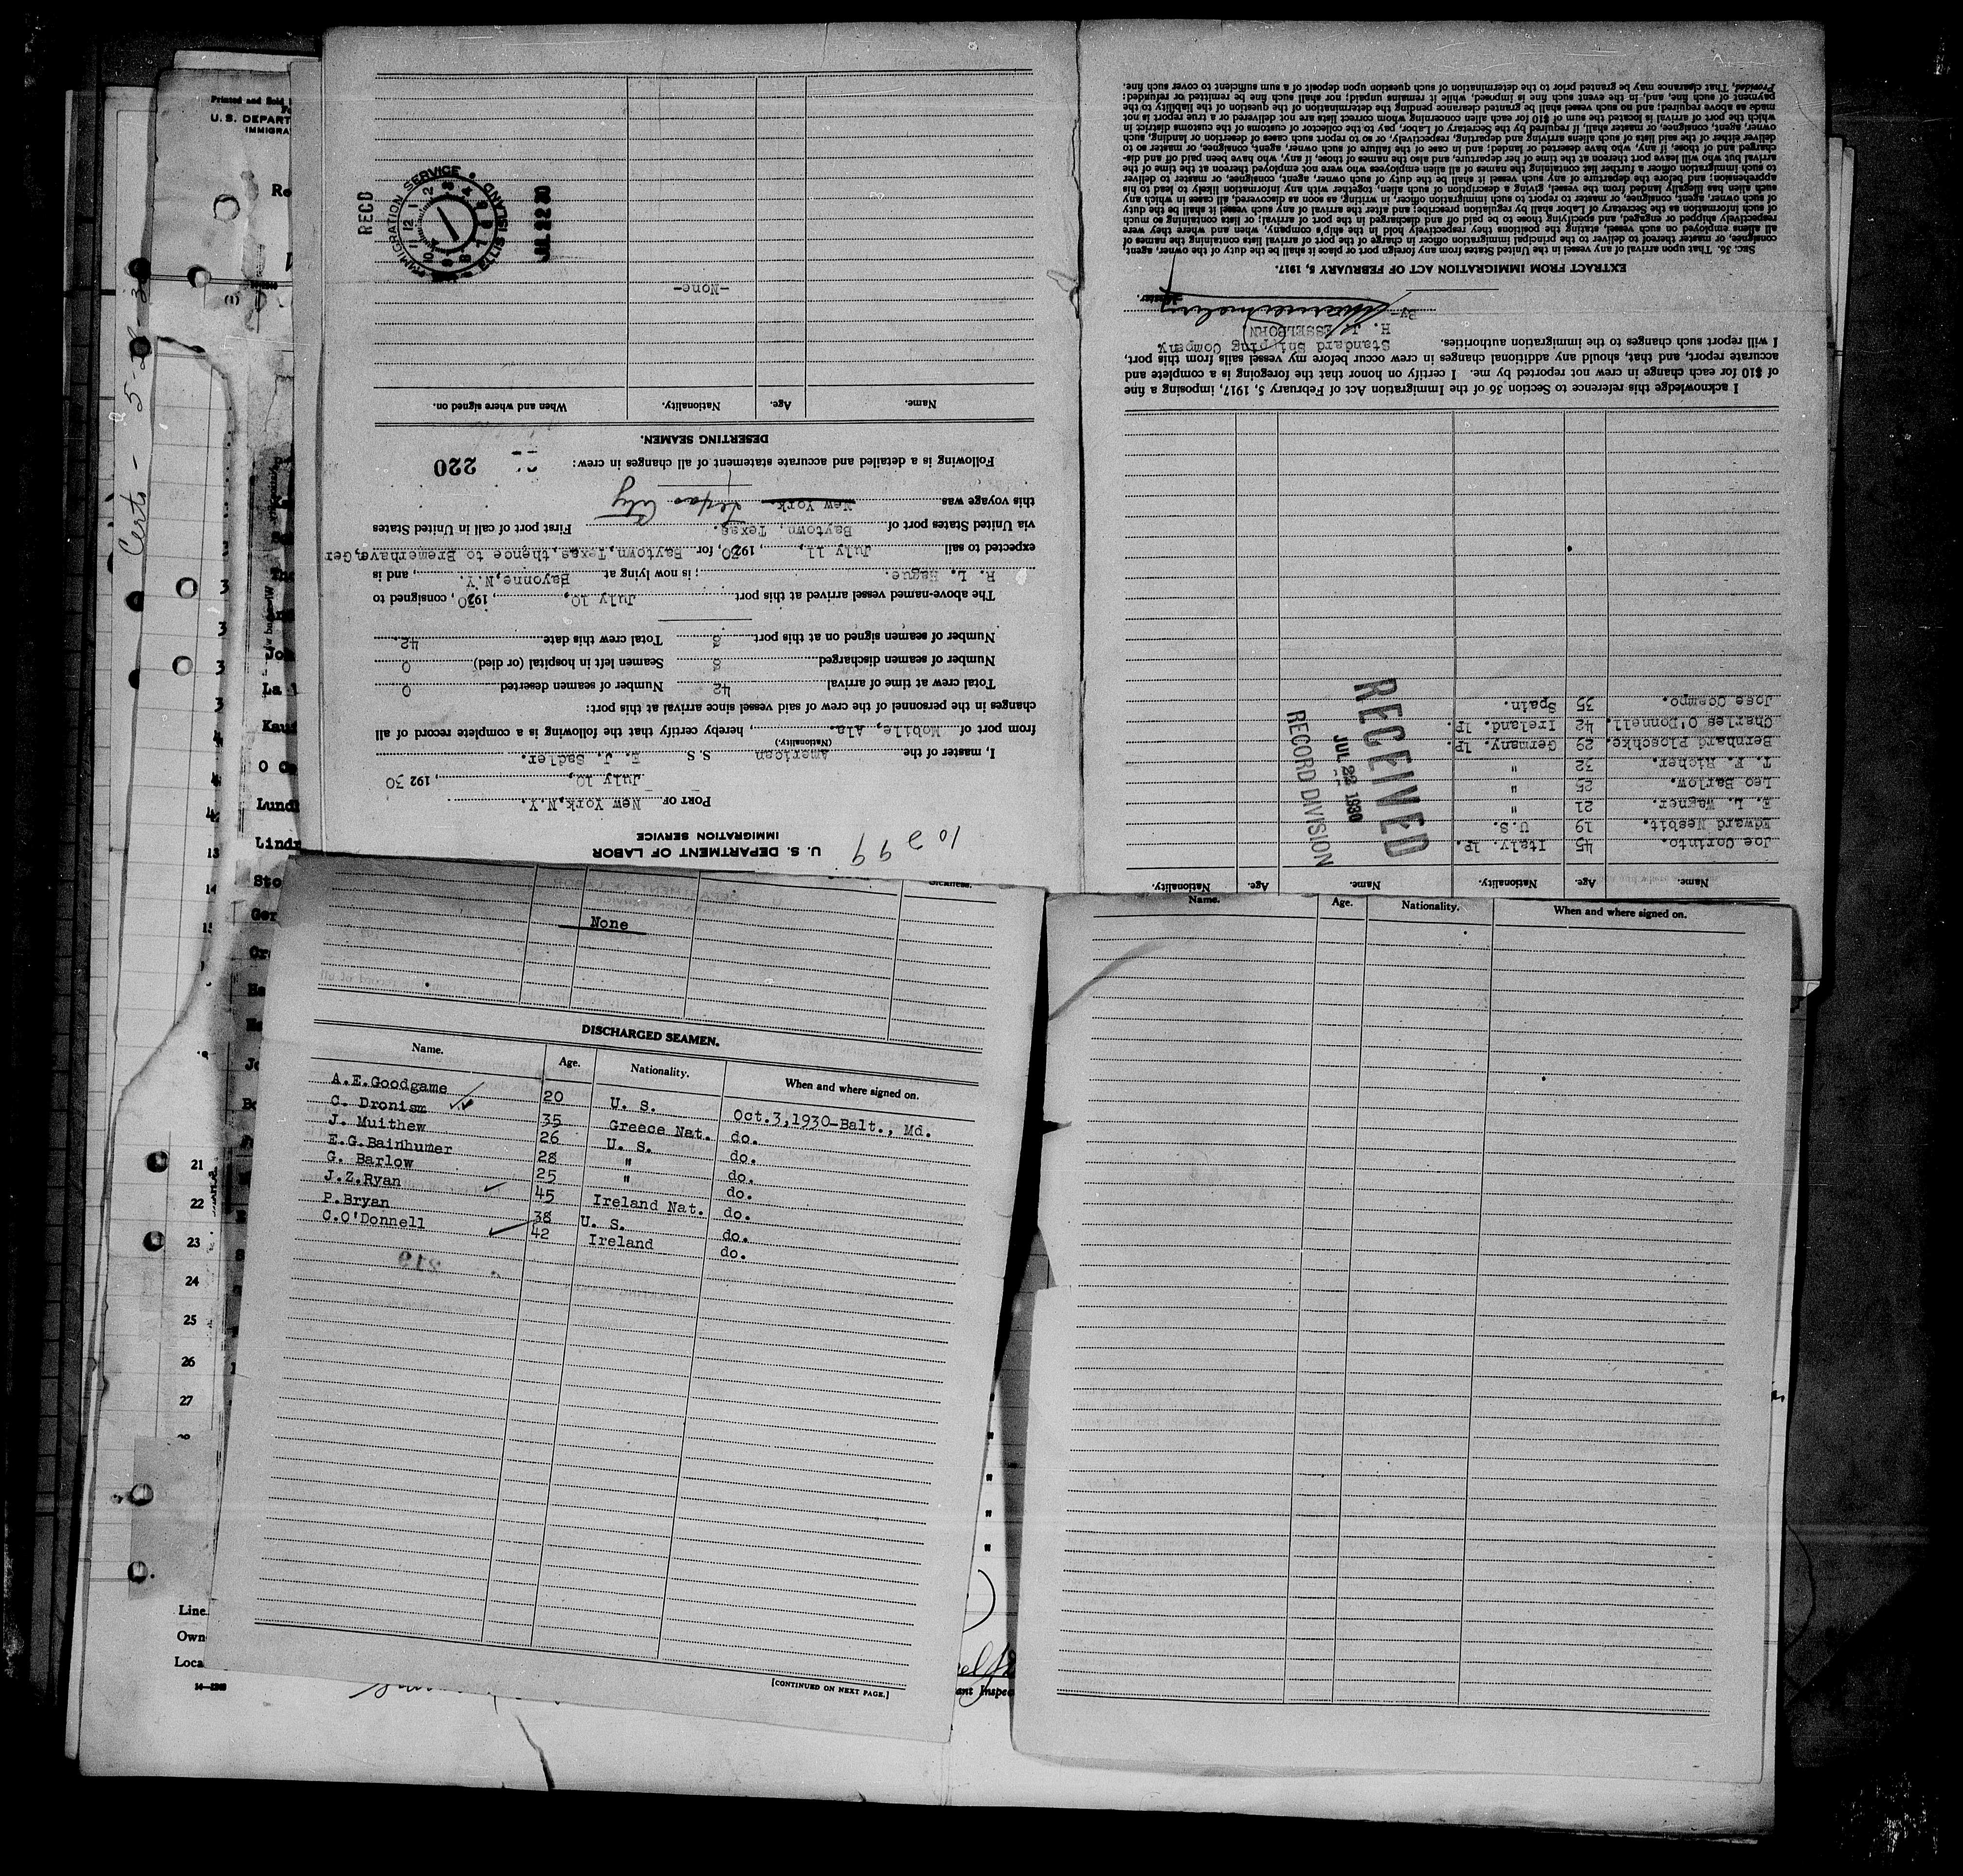 U. S. DEPARTMENT OF LABOR
IMMIGRATION SERVICE
10299
PORT OF New York, N.Y.
July 10, 192 30
I, master of the American S. S. E. J. Sadler.
(Nationality)
from port of Mobile, Ala., hereby certify that the following is a complete record of all
changes in the personnel of the crew of said vessel since arrival at this port:
Total crew at time of arrival 42 Number of seamen deserted 0
Number of seamen discharged 8 Seamen left in hospital (or died) 0
Number of seamen signed on at this port 8 Total crew this date 42.
The above-named vessel arrived at this port July 10, 1930, consigned to
R. L. Hague. ; is now lying at Bayonne, N.Y. , and is
expected to sail July 11, , 1930, for Baytown, Texas, thence to Bremerhave, Ger
via United States port of Baytown, Texas. First port of call in United States
this voyage was New York Texas City
Following is a detailed and accurate statement of all changes in crew:
220
DESERTING SEAMEN.
Name. Age. Nationality. When and where signed on.
-None-
REC'D
IMMIGRATION SERVICE
ELLIS ISLAND
JUL 22 30
Name. Age. Nationality. Name. Age. Nationality.
Joe Corinto. 45 Italy. 1P.
Edward Nesbit. 19 U.S.
E. L. Wagner. 21 "
Leo Barlow. 25 "
T. F. Richer. 32 "
Bernhard Ploschke. 29 Germany. 1P.
Charles O'Donnell. 42 Ireland. 1P.
Jose Ocampo. 35 Spain.
RECEIVED
JUL 22 1930
RECORD DIVISION
I acknowledge this reference to Section 36 of the Immigration Act of February 5, 1917, imposing a fine
of $10 for each change in crew not reported by me. I certify on honor that the foregoing is a complete and
accurate report, and that, should any additional changes in crew occur before my vessel sails from this port,
I will report such changes to the immigration authorities.
Standard Shipping Company
H. J. ESSELBORN
By-
Master.
EXTRACT FROM IMMIGRATION ACT OF FEBRUARY 5, 1917.
SEC. 36. That upon arrival of any vessel in the United States from any foreign port or place it shall be the duty of the owner, agent,
consignee, or master thereof to deliver to the principal immigration officer in charge of the port of arrival lists containing the names of
all aliens employed on such vessel, stating the positions they respectively hold in the ship's company, when and where they were
respectively shipped or engaged, and specifying those to be paid off and discharged in the port of arrival; or lists containing so much
of such information as the Secretary of Labor shall by regulation prescribe; and after the arrival of any such vessel it shall be the duty
of such owner, agent, consignee, or master to report to such immigration officer, in writing, as soon as discovered, all cases in which any
such alien has illegally landed from the vessel, giving a description of such alien, together with any information likely to lead to his
apprehension; and before the departure of any such vessel it shall be the duty of such owner, agent, consignee, or master to deliver
to such immigration officer a further list containing the names of all alien employees who were not employed thereon at the time of the
arrival but who will leave port thereon at the time of her departure, and also the names of those, if any, who have been paid off and dis-
charged and of those, if any, who have deserted or landed; and in case of the failure of such owner, agent, consignee, or master so to
deliver either of the said lists of such aliens arriving and departing, respectively, or so to report such cases of desertion or landing, such
owner, agent, consignee, or master shall, if required by the Secretary of Labor, pay to the collector of customs of the customs district in
which the port of arrival is located the sum of $10 for each alien concerning whom correct lists are not delivered or a true report is not
made as above required; and no such vessel shall be granted clearance pending the determination of the question of the liability to the
payment of such fine, and, in the event such fine is imposed, while it remains unpaid; nor shall such fine be remitted or refunded:
Provided, That clearance may be granted prior to the determination of such question upon deposit of a sum sufficient to cover such fine.
Sickness.
None
DISCHARGED SEAMEN.
Name. Age. Nationality. When and where signed on.
A.E.Goodgame 20 U. S. Oct.3,1930-Balt., Md.
C. Dronism 35 Greece Nat. do.
J. Muithew 26 U. S. do.
E.G.Bainhumer 28 " do.
G. Barlow 25 " do.
J.Z.Ryan 45 Ireland Nat. do.
P.Bryan 38 U. S. do.
C.O'Donnell 42 Ireland do.
219
[CONTINUED ON NEXT PAGE.]
Name. Age. Nationality. When and where signed on.
Certs - 5-28-3
Printed and Sold
U. S. DEPART
IMMIGRA
(1)
La
Kauf
Lund
Lind
Sto
Ger
13
14
21
22
23
24
25
26
27
Line
Own
Loca
ant Inspec